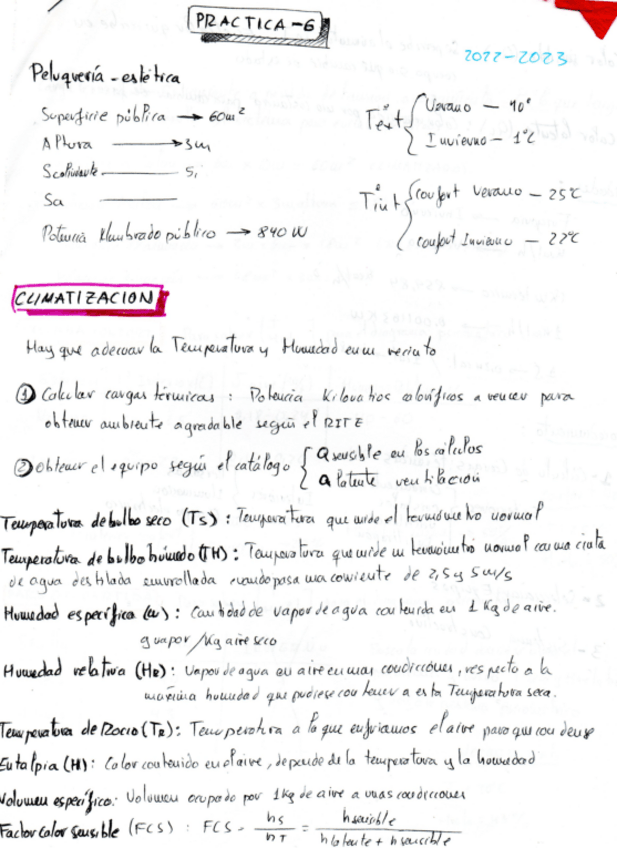 PRACTICA - 6
2022-2023
Peluquería - estética
Superficie pública → 60m²
Altura → 3m
5,
Sa
Potencia Alumbrado público → 840 W
Text { Verano — 40°
Invierno — 1°C
Tint { confort verano — 25°C
confort Invierno — 22°C
CLIMATIZACION
Hay que adecuar la Temperatura y Humedad en un recinto
① Calcular cargas térmicas : Potencia Kilovatios caloríficos a vencer para
obtener ambiente agradable según el RITE
② obtener el equipo según el catálogo { Q sensible en los cálculos
Q latente ventilación
Temperatura de bulbo seco (Ts) : Temperatura que mide el termómetro normal
Temperatura de bulbo húmedo (TH) : Temperatura que mide un termómetro normal con una cinta
de agua destilada enrollada cuando pasa una corriente de 2,5 y 5m/s
Humedad específica (w) : Cantidad de vapor de agua contenida en 1 Kg de aire.
g vapor / Kg aire seco
Humedad relativa (HR) : Vapor de agua en aire en unas condiciones, respecto a la
máxima humedad que pudiese contener a esta Temperatura seca.
Temperatura de Rocio (TR) : Temperatura a la que enfriamos el aire para que condense
Entalpia (H) : Calor contenido en el aire, depende de la temperatura y la humedad
Volumen específico: Volumen ocupado por 1Kg de aire a unas condiciones
Factor calor sensible (FCS) : FCS = hs / hT = h sensible / h latente + h sensible